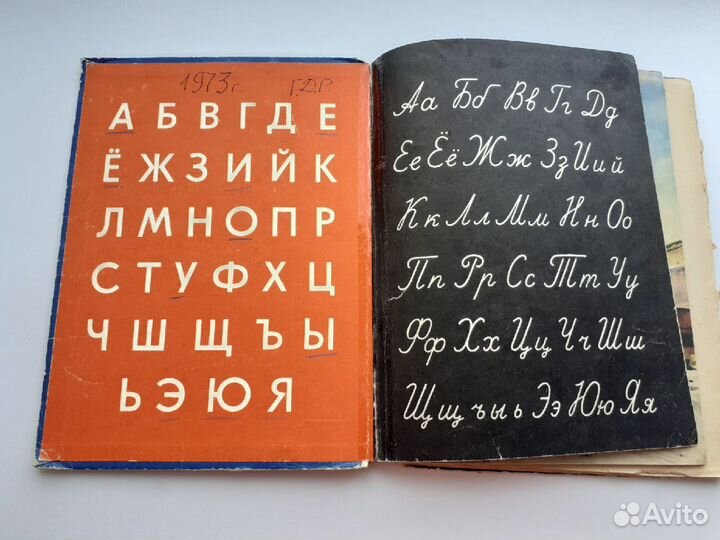 1973г. Г.Д.Р.
А Б В Г Д Е
Ё Ж З И Й К
Л М Н О П Р
С Т У Ф Х Ц
Ч Ш Щ Ъ Ы
Ь Э Ю Я
Аа Бб Вв Гг Дд
Ее Ёё Жж Зз Ии й
Кк Лл Мм Нн Оо
Пп Рр Сс Тт Уу
Фф Хх Цц Чч Шш
Щщ ъ ы ь Ээ Юю Яя
Avito